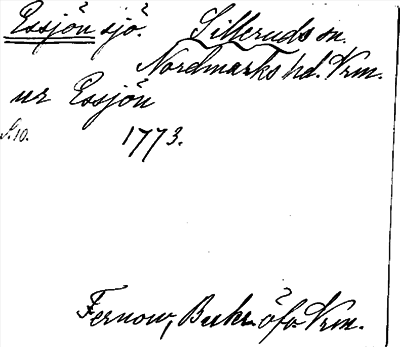 Essjön sjö. Silleruds sn.
Nordmarks hd. Vrm.
ur Essjön
S. 10. 1773.
Fernow, Beskr. öfv. Vrm.